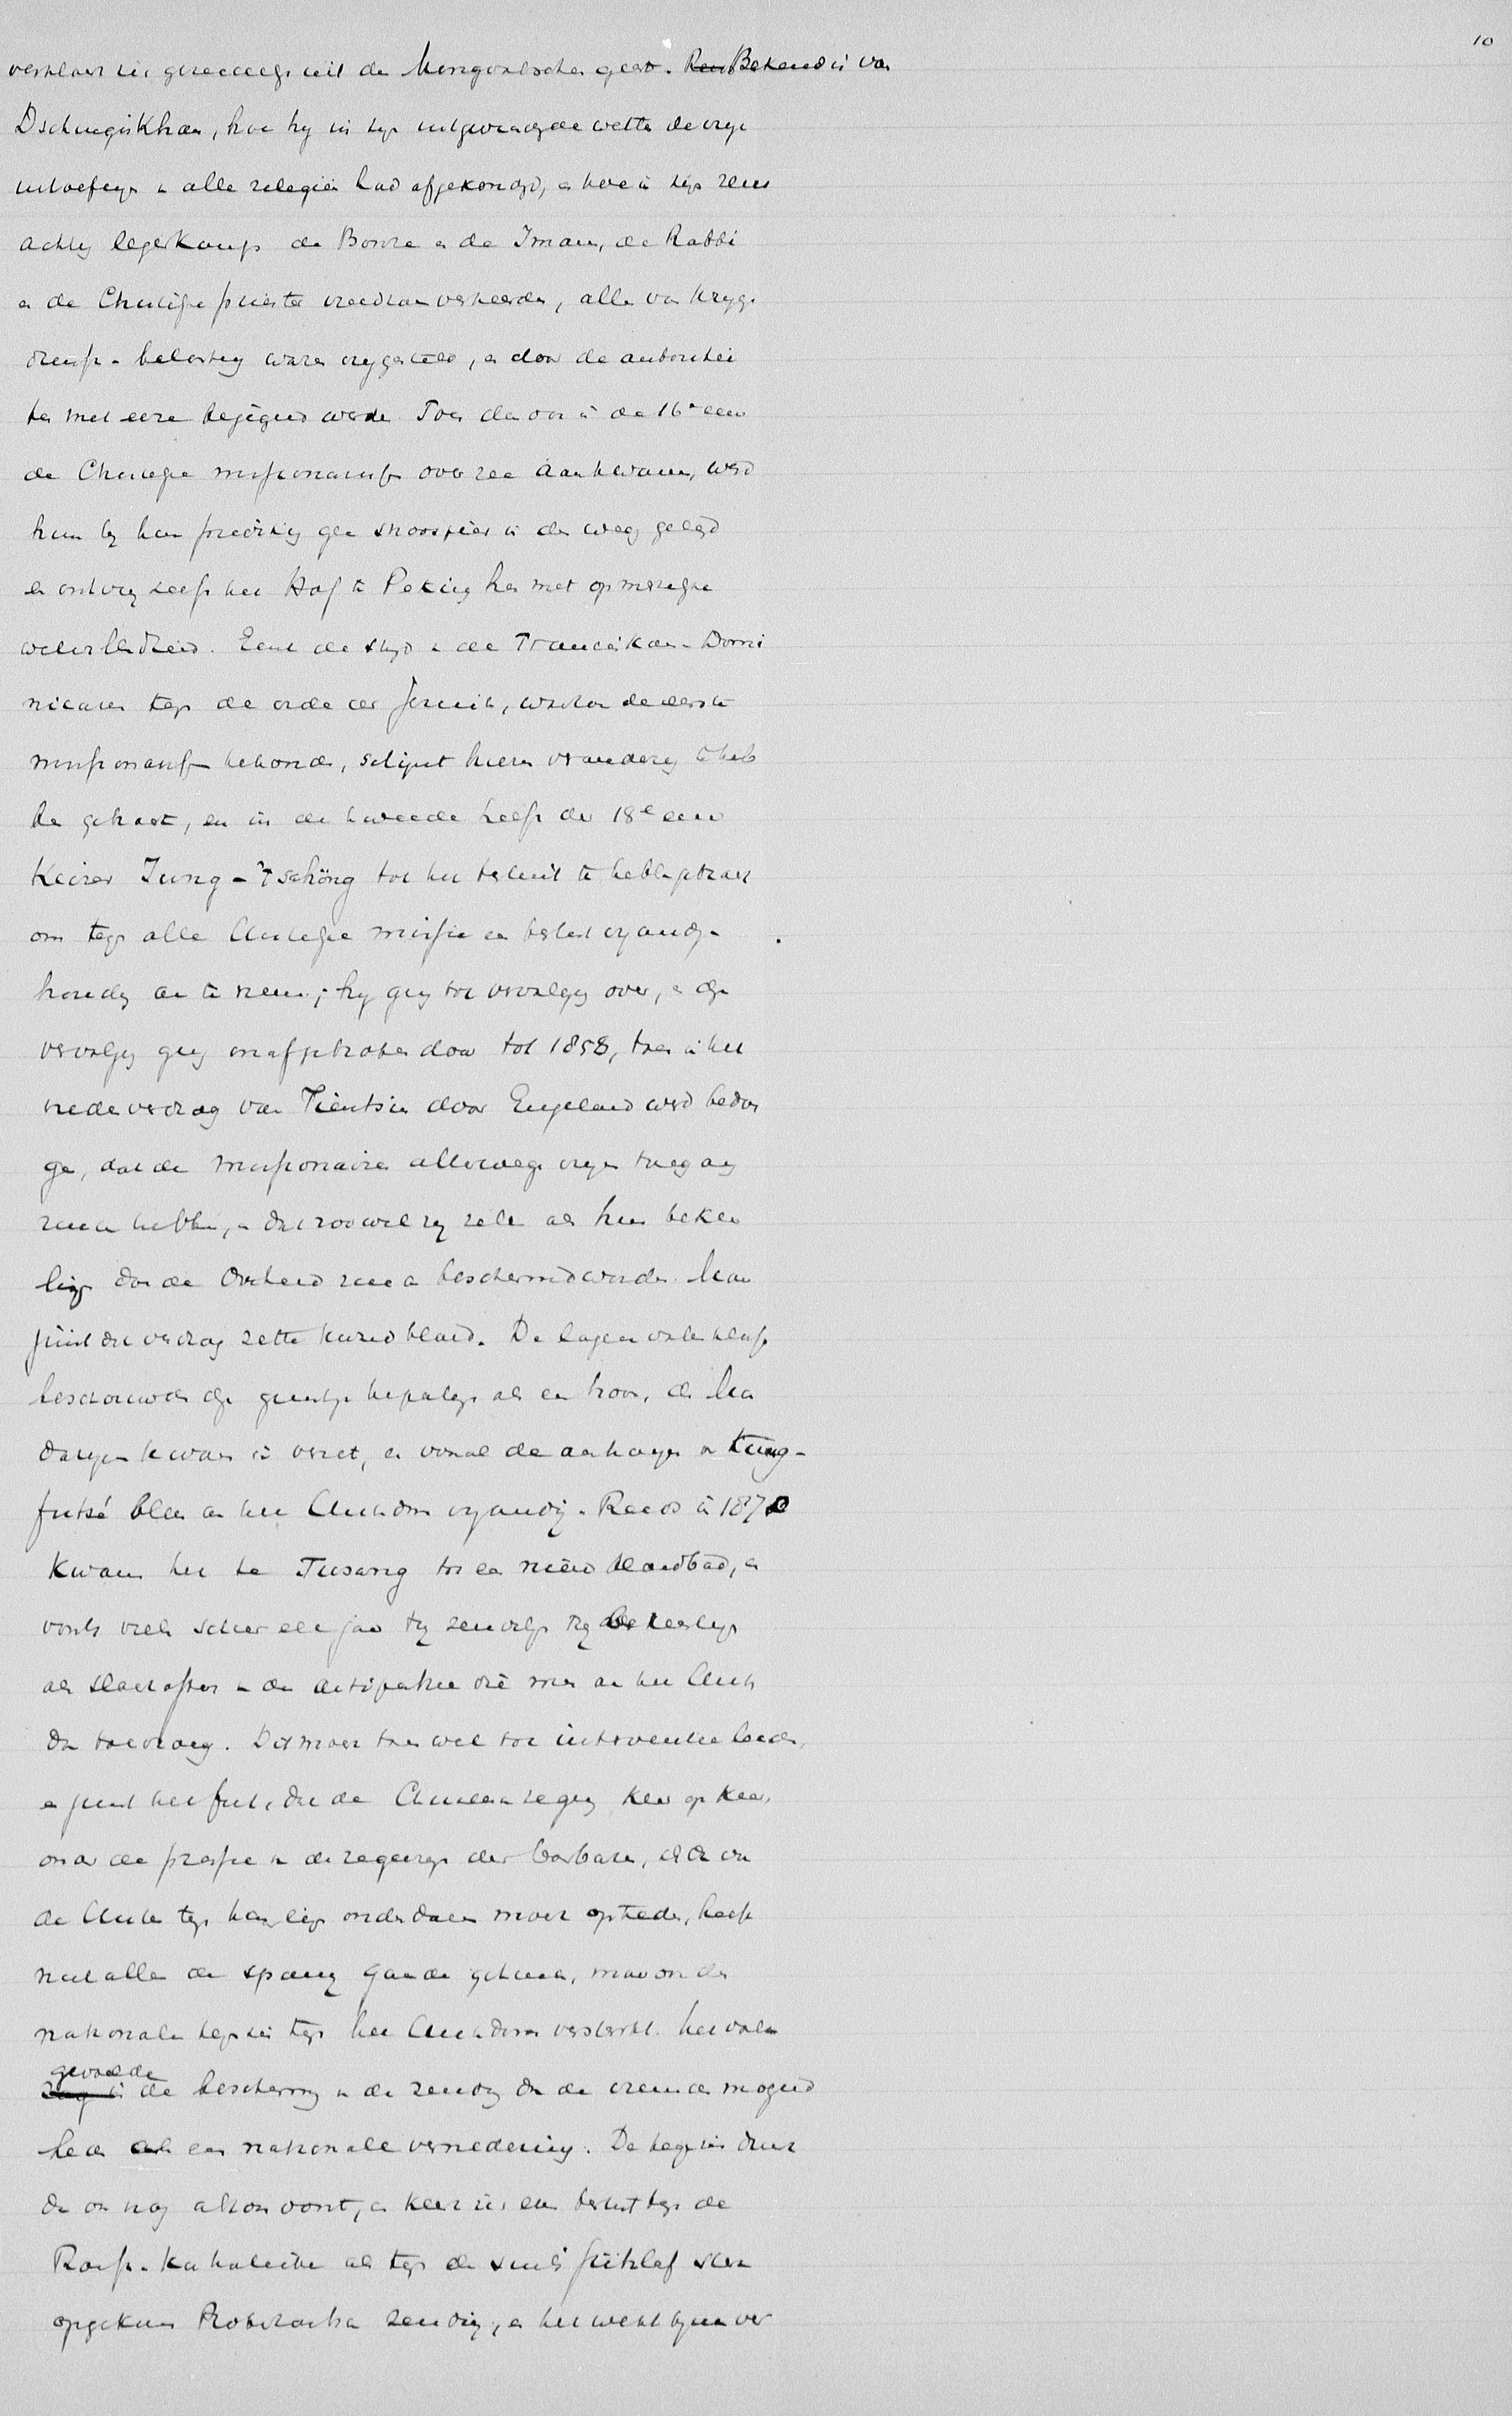 10
verklaart zich gereedelijk uit de Mongoolsche geest. Reeds Bekend is van
Dschingis Khan, hoe hij in zijn uitgevaardigde wetten de vrije
uitoefening van alle religiën had afgekondigd, en hoe in zijn
legerkamp de Bonze en de Imam, de Rabbi
en de Christen priester vreedzaam verkeerden, allen van krijgs
dienst en belasting waren vrijgesteld, en door de autoritei
ten met eere bejegend werden. Toen dan ook in de 16e eeuw
de Christelijke missionarissen over zee aankwamen, werd
hun bij hun prediking geen stroospier in den weg gelegd
en ontving zelfs het Hof te Peking hen met opmerkelijke
welwillendheid. Eerst de strijd van de Franciskanen en Domi
nicanen tegen de orde der Jezuiten, waartoe de eerste
missionarissen behoorden, schijnt hierin verandering te heb
ben gebracht, en in de tweede helft der 18e eeuw
Keizer Jung-Tschöng tot het besluit te hebben gebracht
om tegen alle Christelijke missie een beslist vijandige
houding aan te nemen; hij ging tot vervolging over, en die
vervolging ging onafgebroken door tot 1858, toen in het
vredeverdrag van Tientsin door Engeland werd bedon
gen, dat de missionairen allerwege vrijen toegang
zouden hebben, en dat zoowel zij zelve als hun bekee
lingen door de Overheid zouden beschermd worden. Maar
juist dit verdrag zette kwaad bloed. De lagere volksklasse
beschouwde deze gunstige bepaling als een hoon, de
daartegen kwam in verzet, en vooral de aanhangers van Kung-
futsé bleven aan het Christendom vijandig. Reeds in 1870
kwam het te Tusang tot een nieuw bloedbad, en
voorts vielen schier elk jaar hetzij zendelingen hetzij bekeerlingen
als slachtoffer van de antipathie die men aan het Christen
dom toedroeg. Dit moest toen wel tot interventie leiden,
en juist het feit, dat de Chineesche regeering keer op keer,
onder de pressie van de regeeringen der barbaren, als
de Christen tegen haar eigen onderdanen moest optreden, heeft
niet alleen de spanning gaande gehouden, maar ook de
nationale tegenzin tegen het Christendom versterkt. Het volk
gevoelde
zag in de bescherming van de zending door de vreemde mogend
heden als een nationale vernedering. De tegenzin duurt
dan ook nog altoos voort, en keert zich even beslist tegen de
Roomsch-Katholieke als tegen de sinds Gützlaf sterk
opgekomen Protestantsche zending, en het werkt